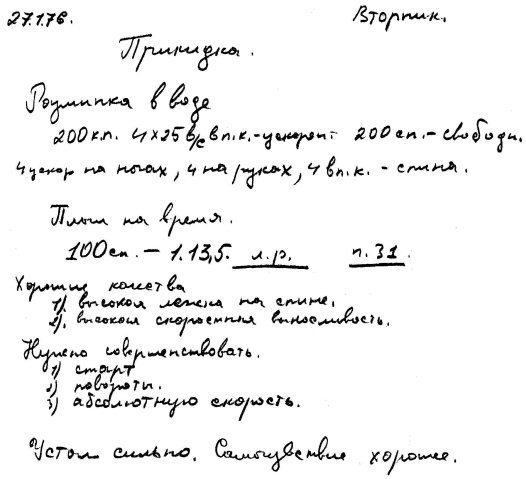 27.1.76. Вторник.
Прикидка.
Розминка в воде
200 к.п. 4×25 в/с в п.к.-ускорен. 200 сп.-свободн.
4 ускор на ногах, 4 на руках, 4 в п.к. - спина.
Плыл на время.
100 сп. - 1.13,5. л.р. п.31.
Хорошие качества
1). высокая лежка на спине.
2). высокая скоростная выносливость.
Нужно совершенствовать.
1) старт
2) повороты.
3) абсолютную скорость.
Устал сильно. Самочувствие хорошее.